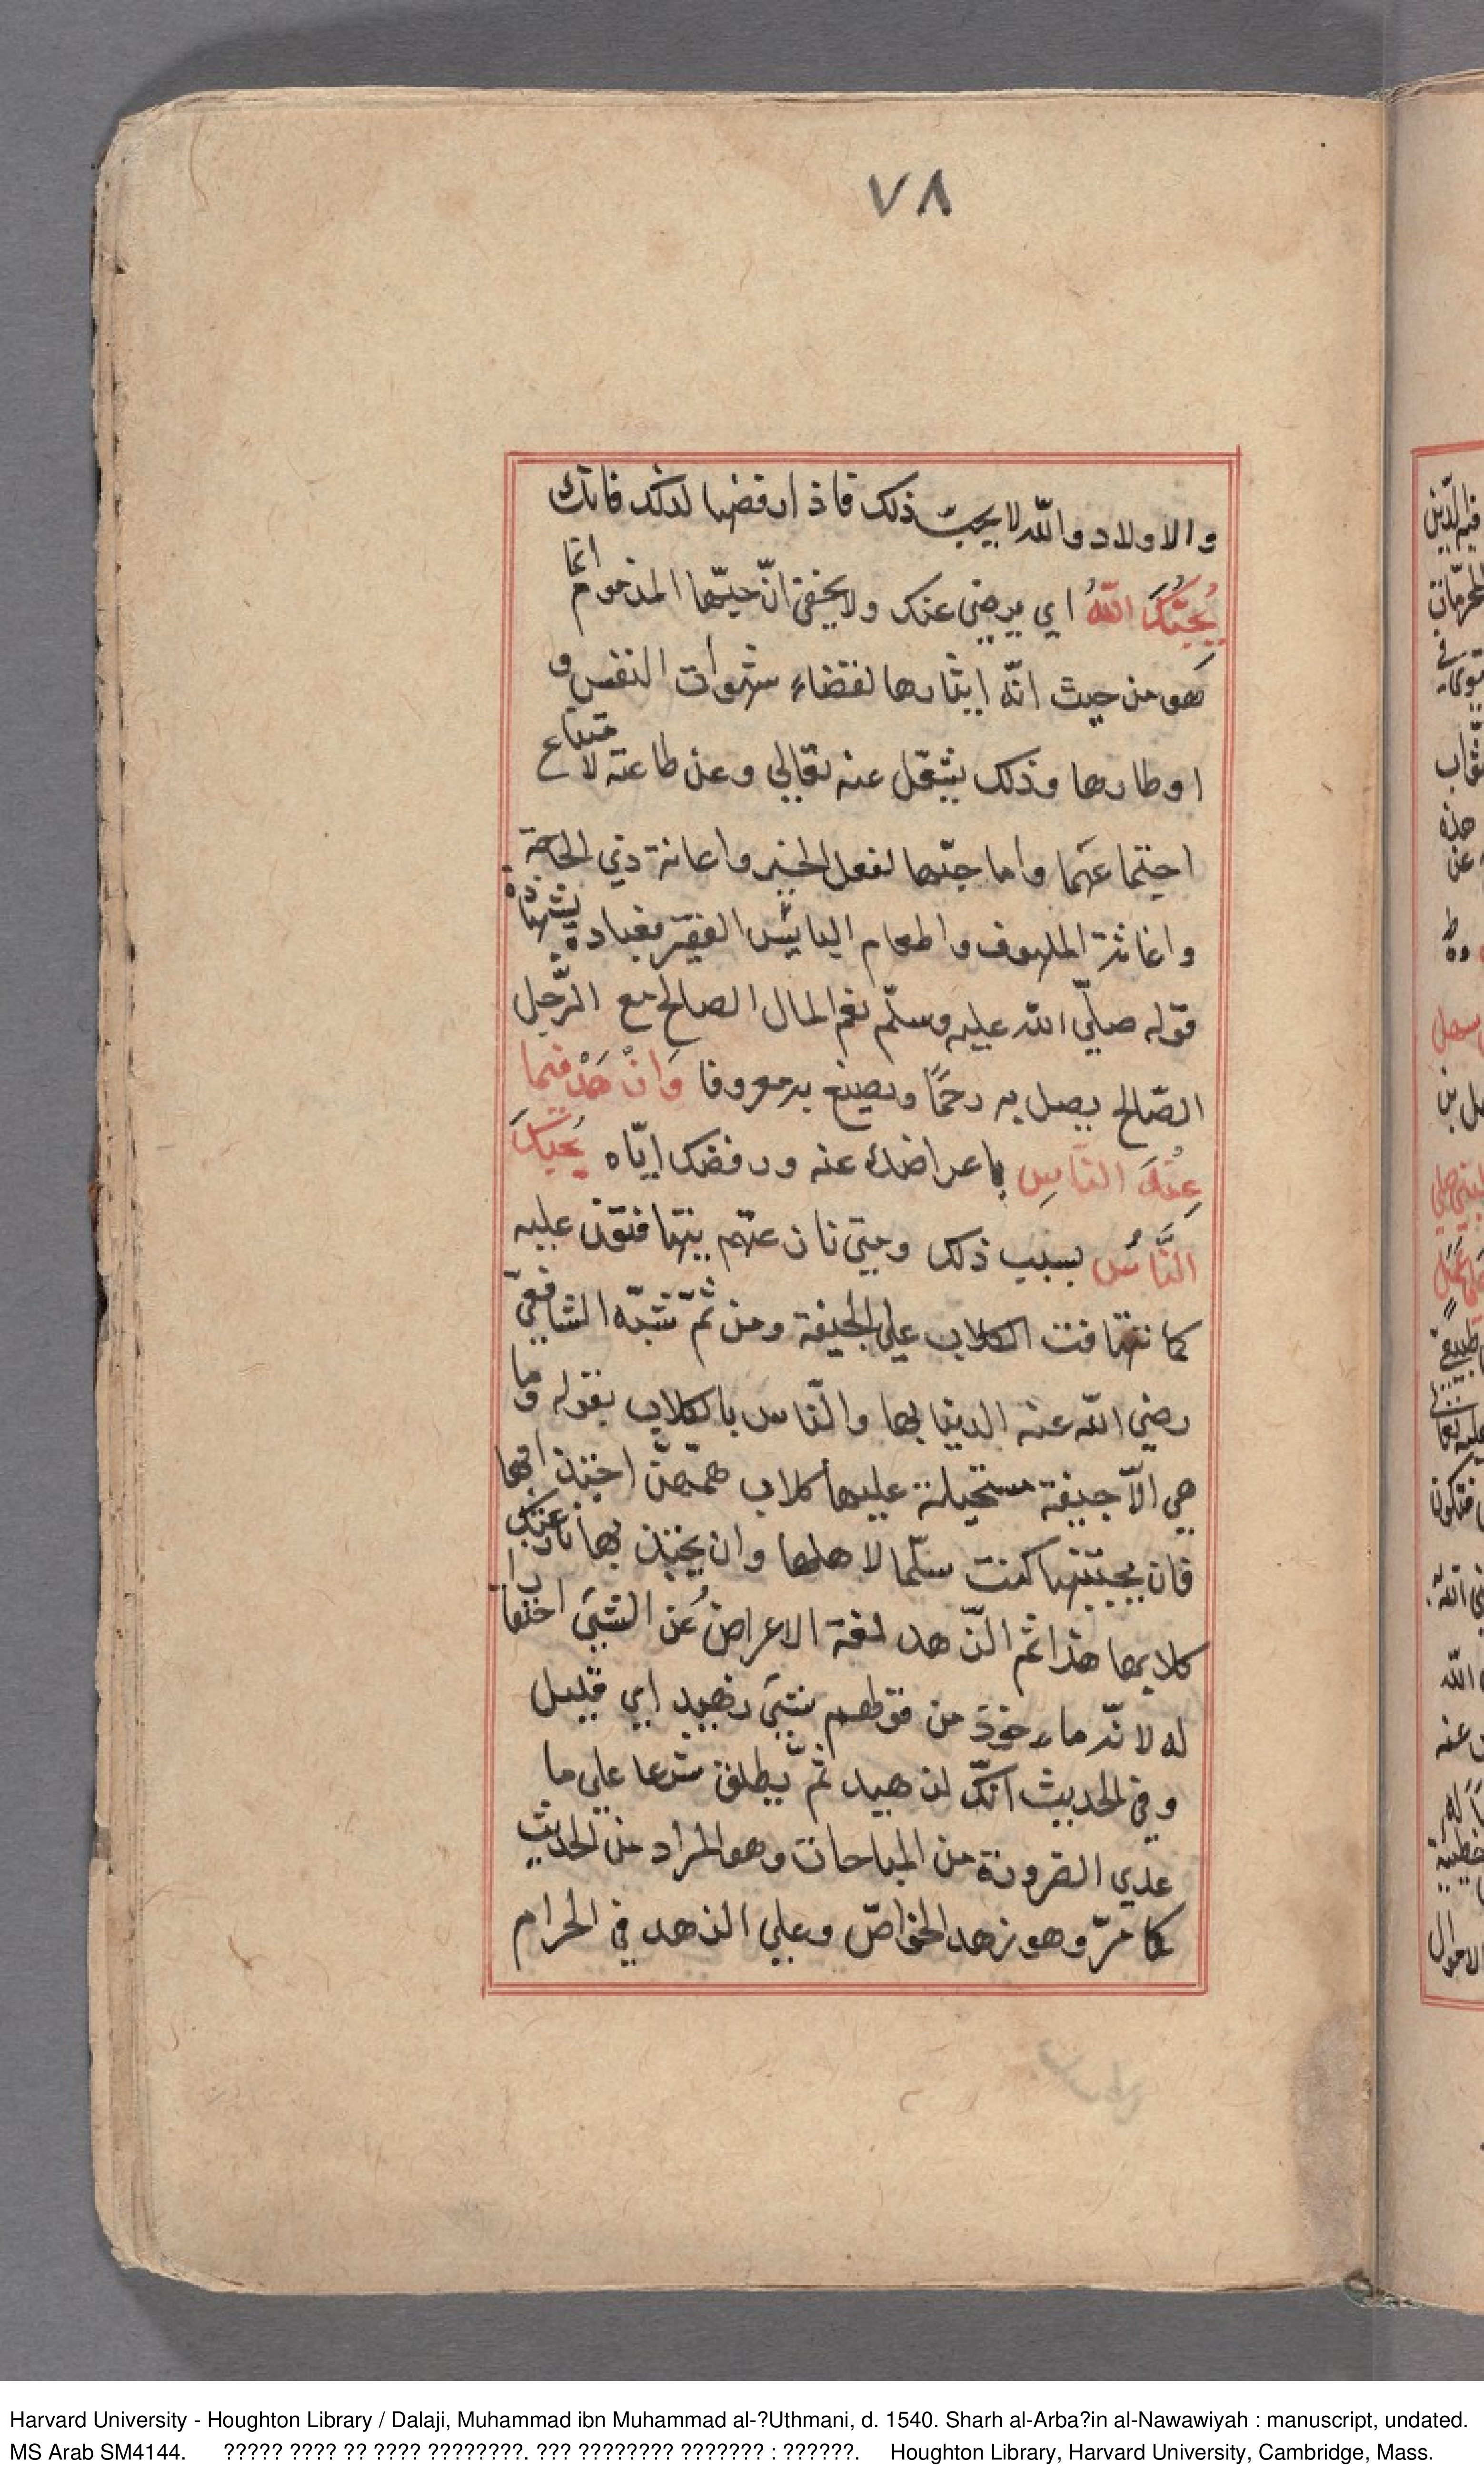 ٧٨
والاولاد والله لا يحب ذلك فاذا رفضها لذلك فانك
يُحِبُّكَ اللهُ اي يرضي عنك ولا يخفي انّ حبّها المذموم انما
هو من حيث انّه ايثارها لقضاء شهوات النفس و
اوطارها وذلك يشغل عنه تعالي وعن طاعته لامتناع
اجتماعهما واما حبّها لفعل الخير واعانة ذي الحاجة
واغاثة الملهوف واطعام البائس الفقير فعبادة بشهادة
قوله صلّي الله عليه وسلّم نعم المال الصالح مع الرّجل
الصّالح يصل به رحمًا ويصنع به معروفا وَازْهَدْ فيما
عِنْدَ النَّاسِ باعراضك عنه ورفضك ايّاه يُحِبُّكَ
النَّاسُ بسبب ذلك وحتي نازعتهم
كما تتهافت الكلاب علي الجيفة ومن ثمّ شبّه الشافعيّ
رضي الله عنه الدنيا بها والنّاس بالكلاب بقوله وما
هي الاّ جيفة مستحيلة عليها كلاب همّهنّ اجتذابها
فان تجتنبها كنت سلّما لاهلها وان تجتذبها نازعتك
كلابها هذا ثم الزّهد لغة الاعراض عن الشيئ احتقارا
له لانّه ماءخوذ من قولهم شيئ زهيد اي قليل
وفي الحديث انّك لزهيد ثمّ يطلق شرعا علي ما
عدي الضرورة من المباحات وهو المراد من الحديث
كما مرّ وهو زهد الخواصّ وعلي الزهد في الحرام
Harvard University - Houghton Library / Dalaji, Muhammad ibn Muhammad al-?Uthmani, d. 1540. Sharh al-Arba?in al-Nawawiyah : manuscript, undated.
MS Arab SM4144. ????? ???? ?? ???? ????????. ??? ???????? ??????? : ??????. Houghton Library, Harvard University, Cambridge, Mass.